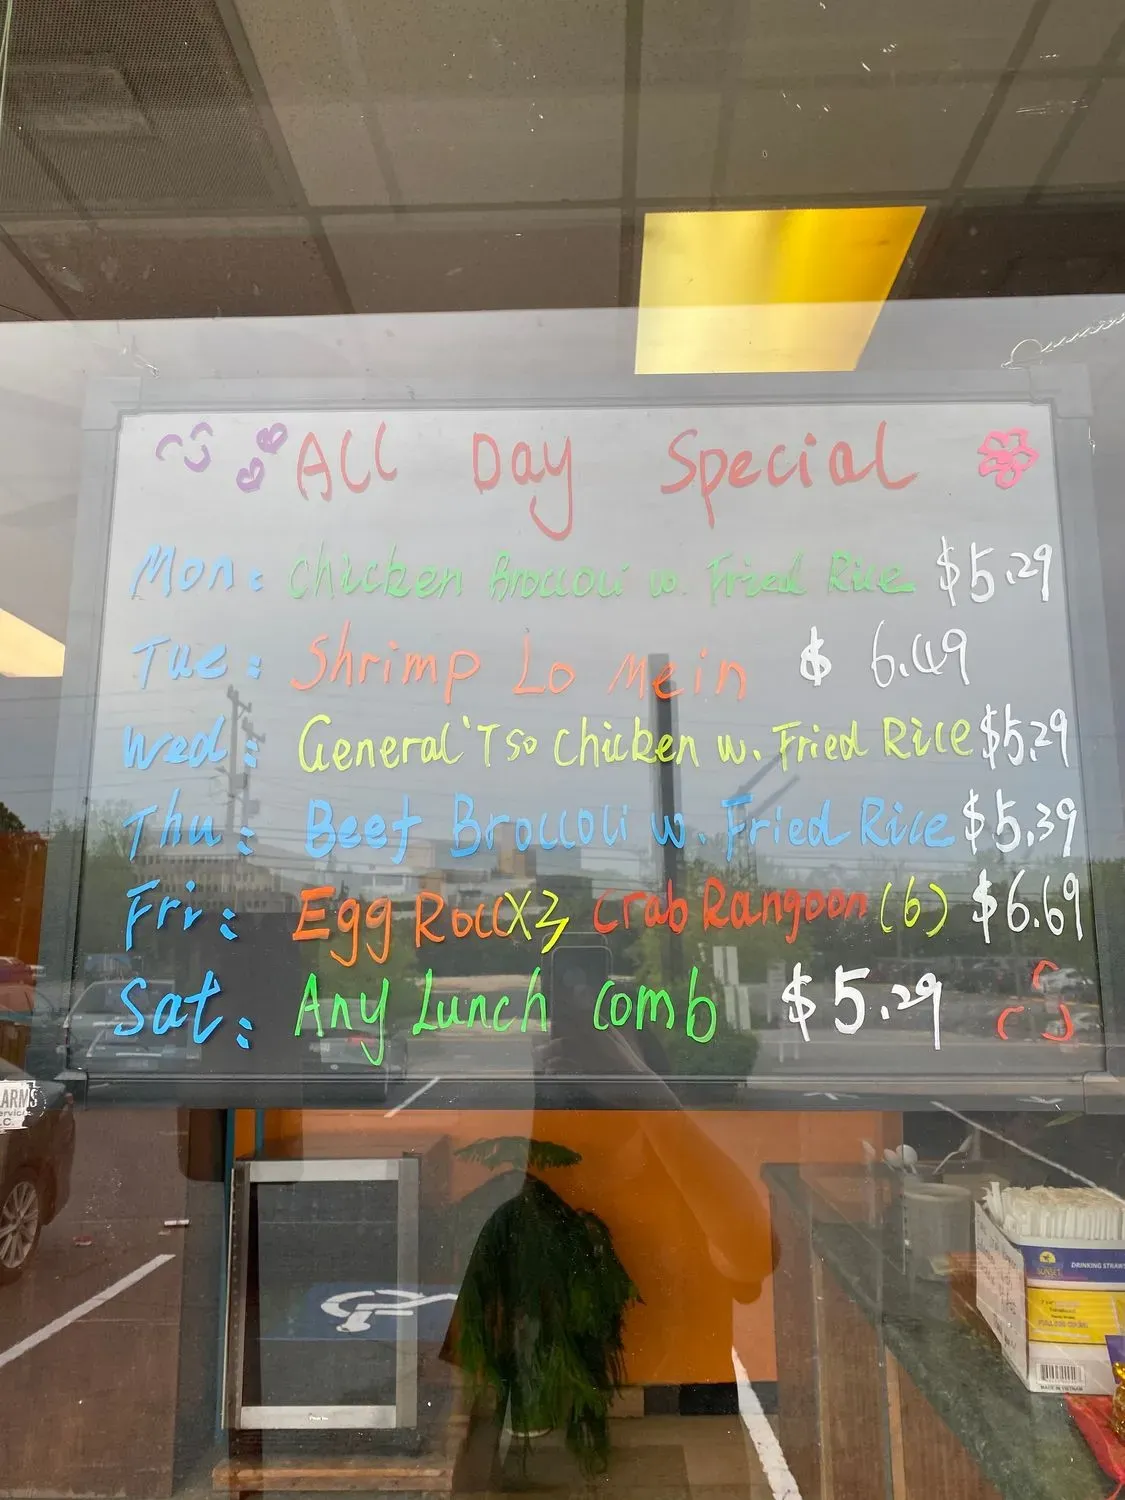 All Day Special
Mon: Chicken Broccoli w. Fried Rice $5.29
Tue: Shrimp Lo Mein $ 6.49
Wed: General'Tso Chicken w. Fried Rice $5.29
Thu: Beef Broccoli w. Fried Rice $5.39
Fri: Egg RollX2, Crab Rangoon (6) $6.69
Sat: Any Lunch Comb $5.29
ARMS
ervice
.C.
SUNSET
DRINKING STRAW
MADE IN VIETNAM